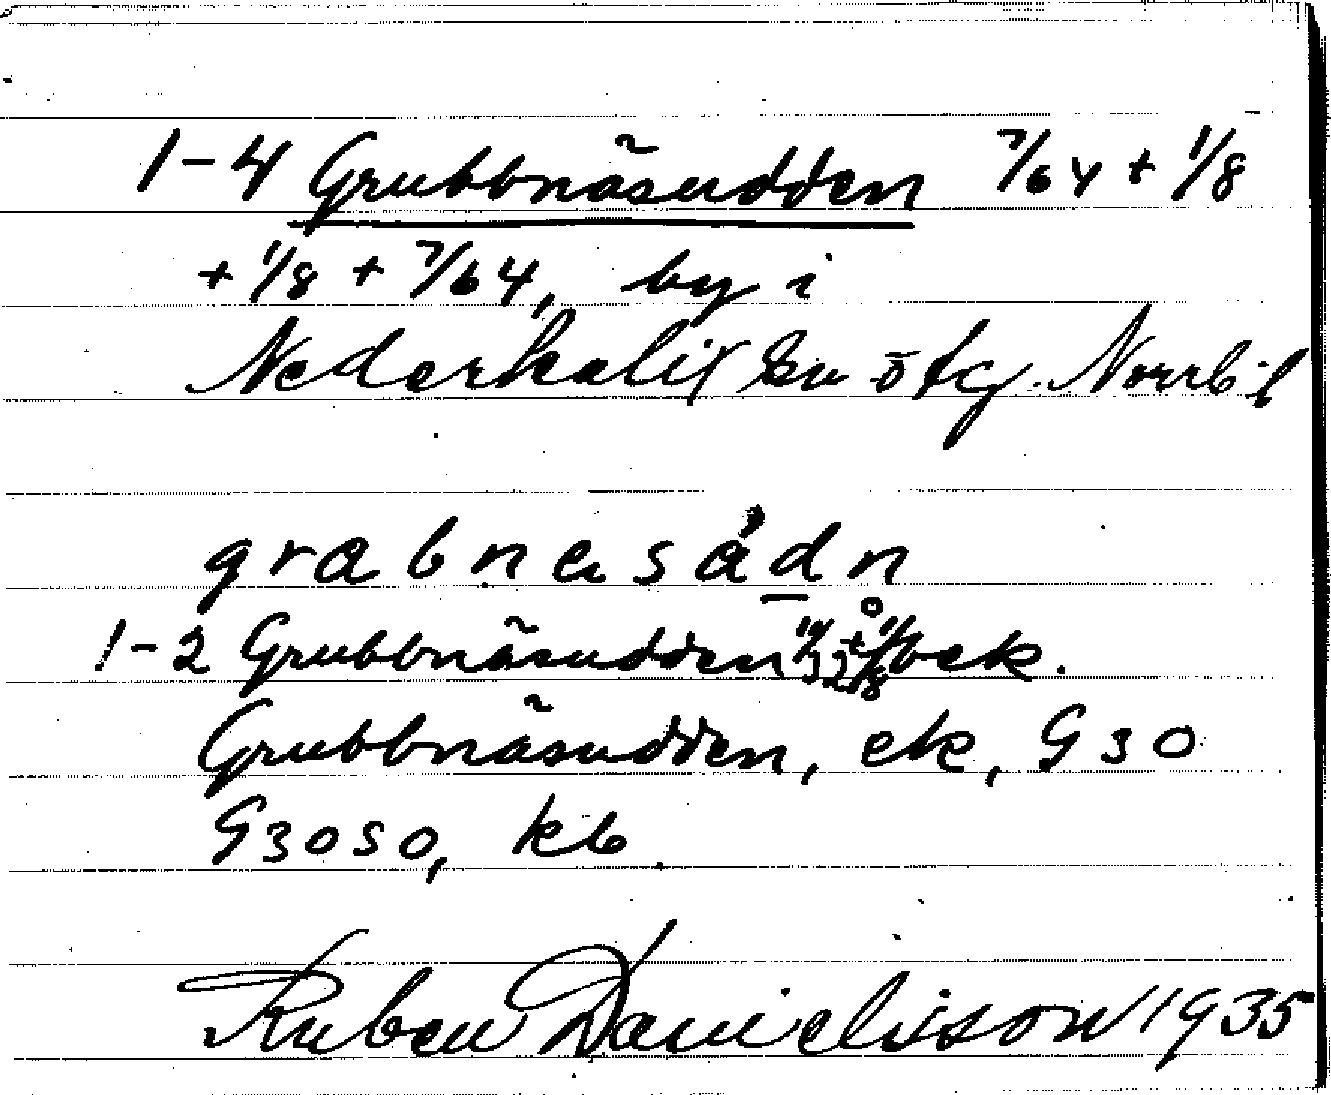 1-4 Grubbnäsudden 7/64 + 1/8
+ 1/8 + 7/64, by i
Nederkalix sn ötg. Norrb. l
grabnasådn
1-2 Grubbnäsudden bek.
Grubbnäsudden, ek, G 30
G3050, kb
Ruben Danielsson 1935